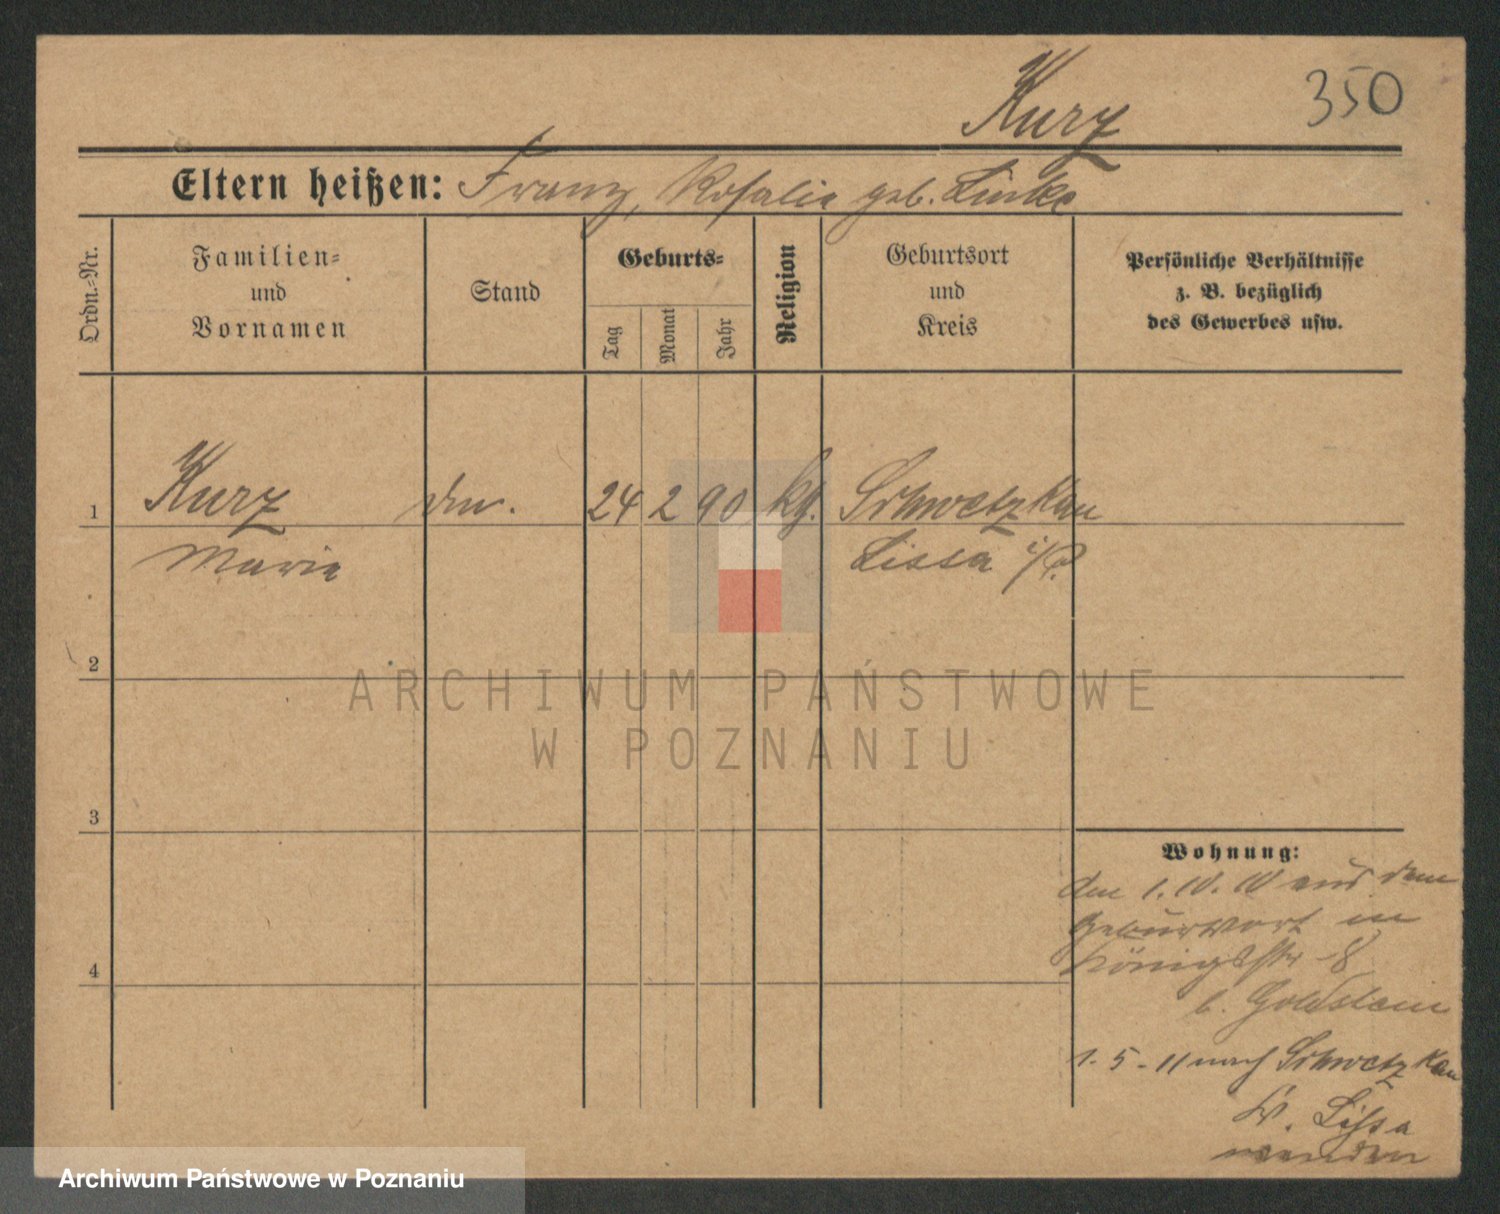 350
Kurz
Eltern heißen: Franz, Rosalie geb. Linke
Ordn.-Nr.
Familien- und Vornamen
Stand
Geburts-
Tag
Monat
Jahr
Religion
Geburtsort und Kreis
Persönliche Verhältnisse
z. B. bezüglich
des Gewerbes usw.
1 Kurz 24 2 90 kth. Schwetzkau
Marie Lissa i/P.
2
ARCHIWUM PAŃSTWOWE
W POZNANIU
3
Wohnung:
den 1. 10. 10 aus dem
Geburtsort in
Königsstr 8
b. Goldstein
4
1. 5. 11 nach Schwetzkau
Kr. Lissa
wenden
Archiwum Państwowe w Poznaniu